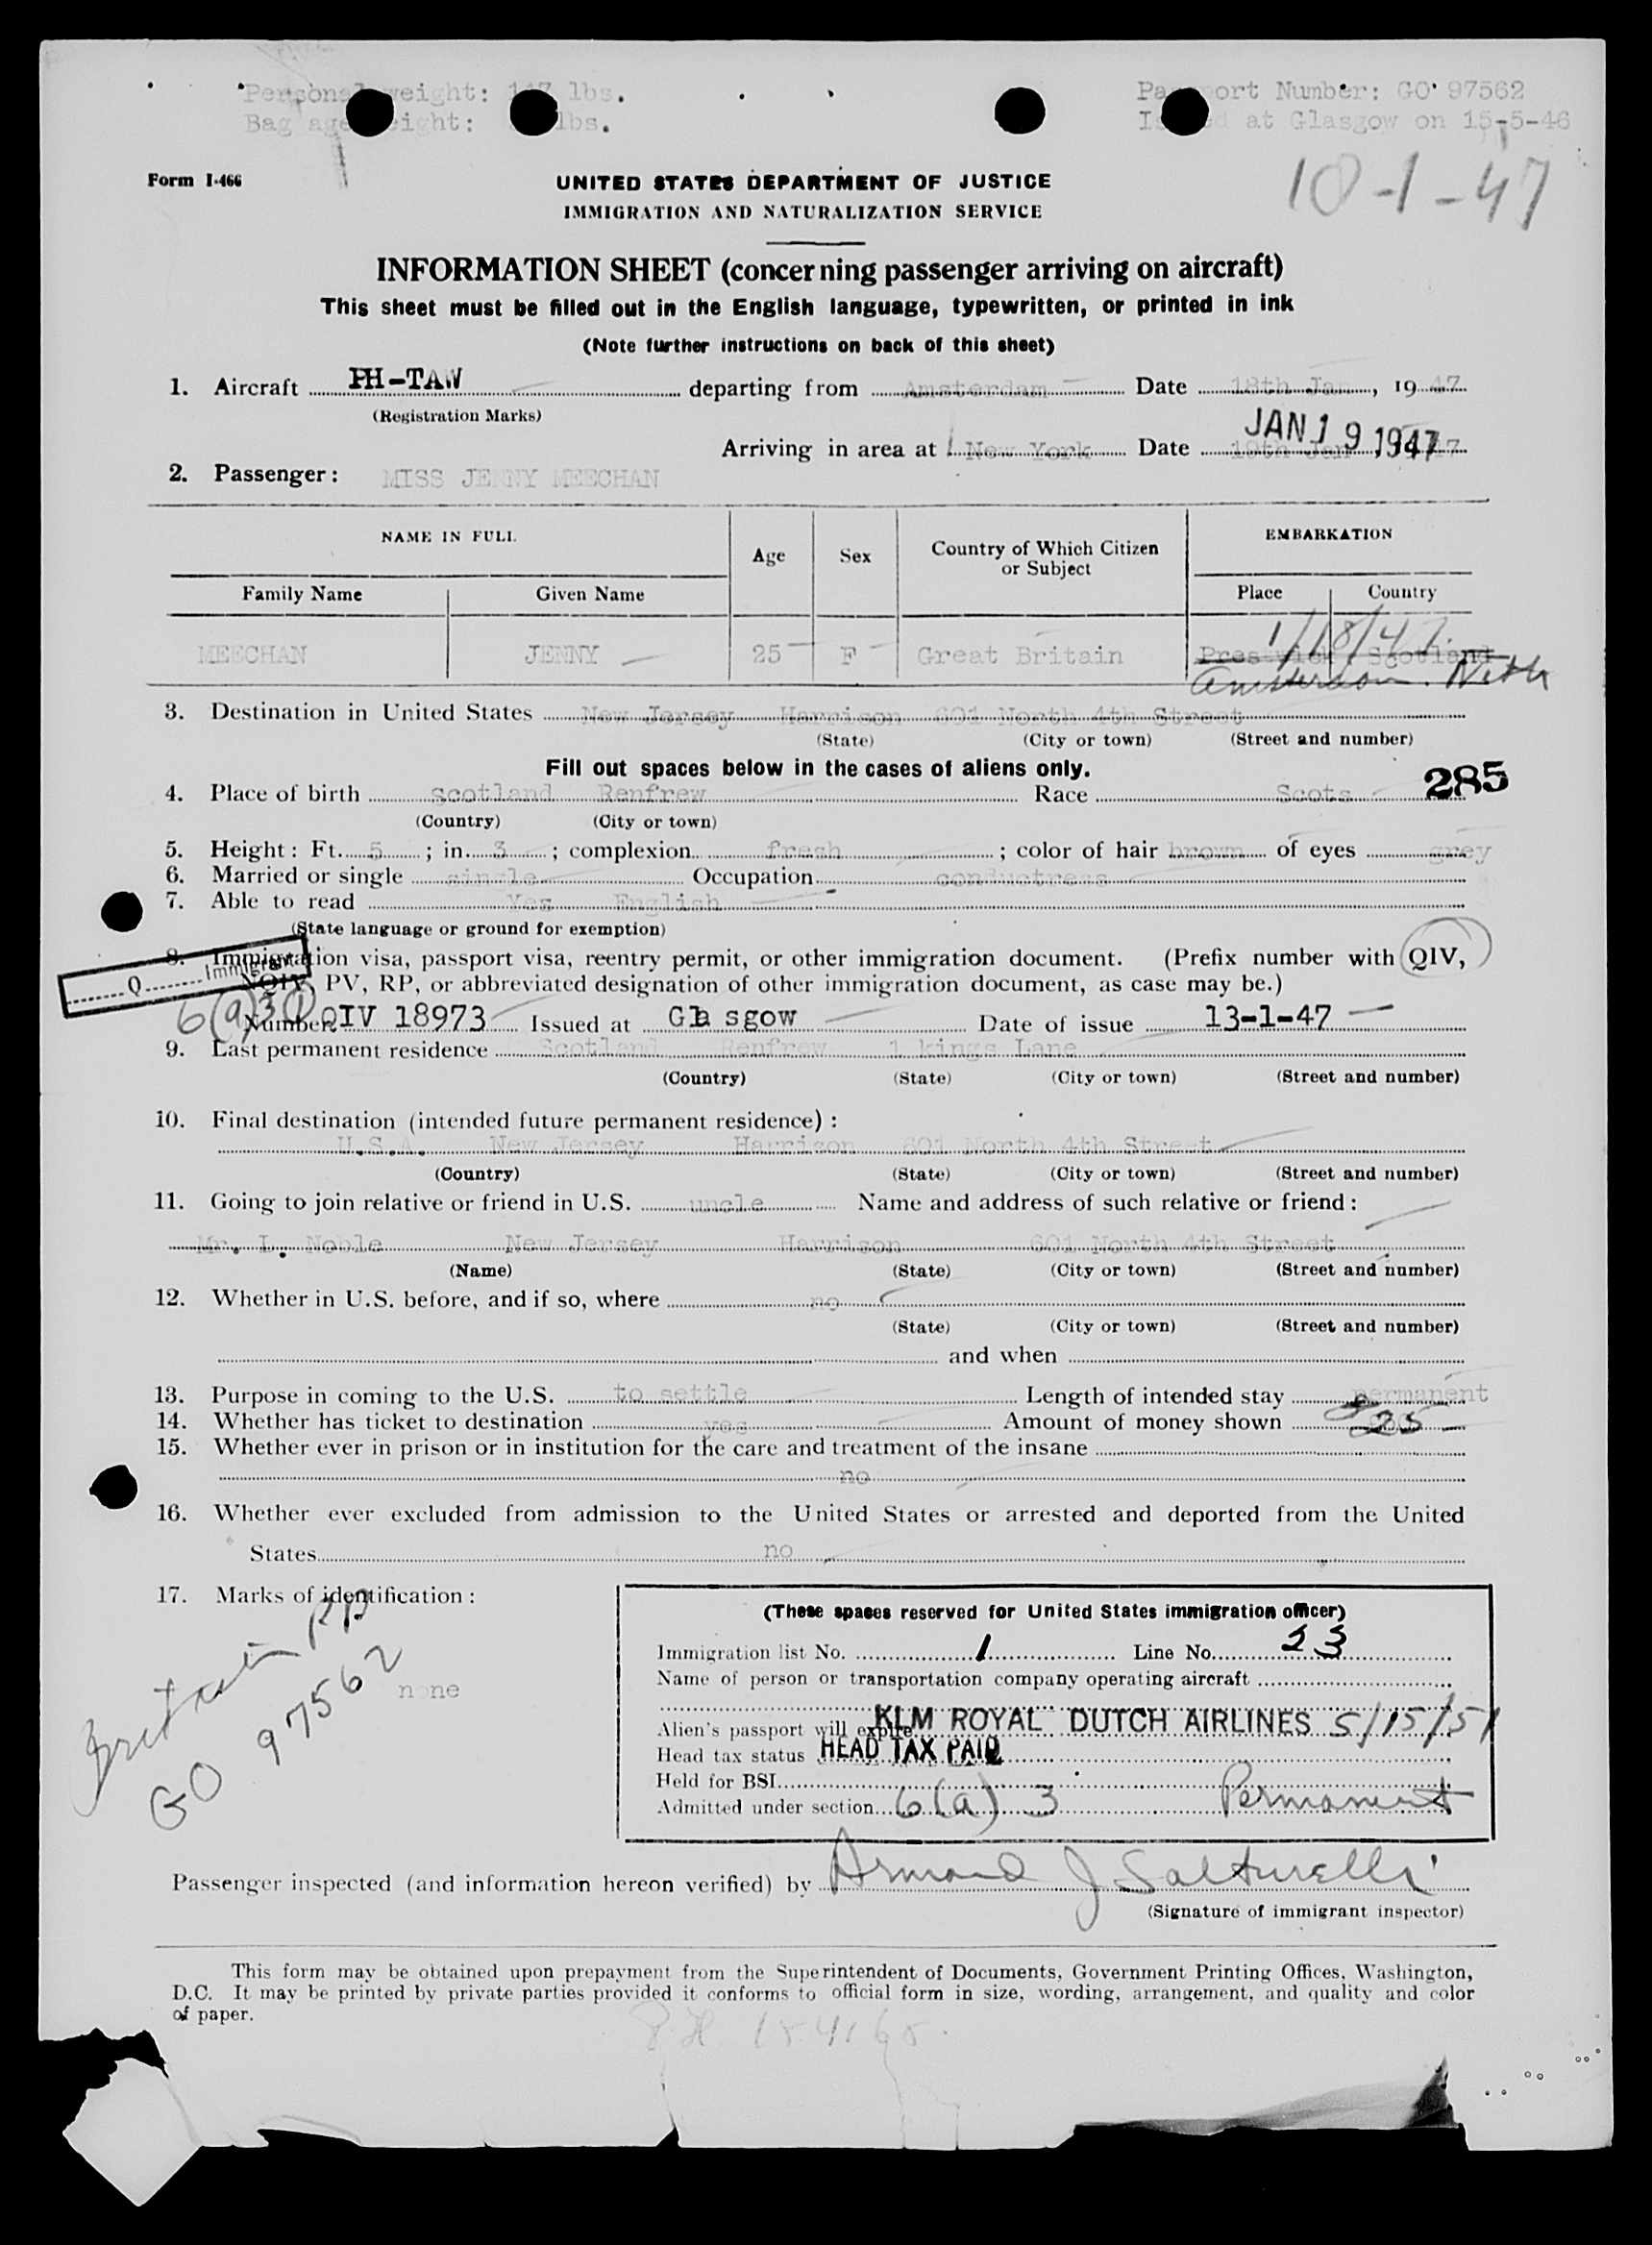 Personal weight: lbs. Passport Number: GO 97562
Baggage weight: lbs. Issued at Glasgow on 15-5-46
Form I-466
UNITED STATES DEPARTMENT OF JUSTICE
IMMIGRATION AND NATURALIZATION SERVICE
10-1-47
INFORMATION SHEET (concerning passenger arriving on aircraft)
This sheet must be filled out in the English language, typewritten, or printed in ink
(Note further instructions on back of this sheet)
1. Aircraft PH-TAW departing from Amsterdam Date 18th Jan, 19 47
(Registration Marks)
JAN 19 1947
Arriving in area at New York Date 19th Jan 47
2. Passenger: MISS JENNY MEECHAN
NAME IN FULL Age Sex Country of Which Citizen or Subject EMBARKATION
Family Name Given Name Place Country
1/18/47.
MEECHAN JENNY 25 F Great Britain Prestwick Scotland
Amsterdam. Neth
3. Destination in United States New Jersey Harrison 601 North 4th Street
(State) (City or town) (Street and number)
Fill out spaces below in the cases of aliens only.
285
4. Place of birth Scotland Renfrew Race Scots
(Country) (City or town)
5. Height: Ft. 5 ; in. 3 ; complexion fresh ; color of hair brown of eyes grey
6. Married or single single Occupation conductress
7. Able to read Yes English
(State language or ground for exemption)
8. Immigration visa, passport visa, reentry permit, or other immigration document. (Prefix number with QIV,
Q Immigrant
NQIV, PV, RP, or abbreviated designation of other immigration document, as case may be.)
6(a)3(1)
Number QIV 18973 Issued at Glasgow Date of issue 13-1-47
9. Last permanent residence Scotland Renfrew 1 kings Lane
(Country) (State) (City or town) (Street and number)
10. Final destination (intended future permanent residence) :
U.S.A. New Jersey Harrison 601 North 4th Street
(Country) (State) (City or town) (Street and number)
11. Going to join relative or friend in U.S. uncle Name and address of such relative or friend :
Mr. L. Noble New Jersey Harrison 601 North 4th Street
(Name) (State) (City or town) (Street and number)
12. Whether in U.S. before, and if so, where no
(State) (City or town) (Street and number)
and when
13. Purpose in coming to the U.S. to settle Length of intended stay permanent
14. Whether has ticket to destination yes Amount of money shown 25
15. Whether ever in prison or in institution for the care and treatment of the insane
no
16. Whether ever excluded from admission to the United States or arrested and deported from the United
States no
17. Marks of identification :
none
Britain PP
GO 97562
(These spaces reserved for United States immigration officer)
Immigration list No. 1 Line No. 23
Name of person or transportation company operating aircraft
KLM ROYAL DUTCH AIRLINES
Alien's passport will expire 5/15/51
Head tax status HEAD TAX PAID
Held for BSI
Admitted under section 6(a) 3 Permanent
Passenger inspected (and information hereon verified) by Armand J Salturelli
(Signature of immigrant inspector)
This form may be obtained upon prepayment from the Superintendent of Documents, Government Printing Offices, Washington,
D.C. It may be printed by private parties provided it conforms to official form in size, wording, arrangement, and quality and color
of paper.